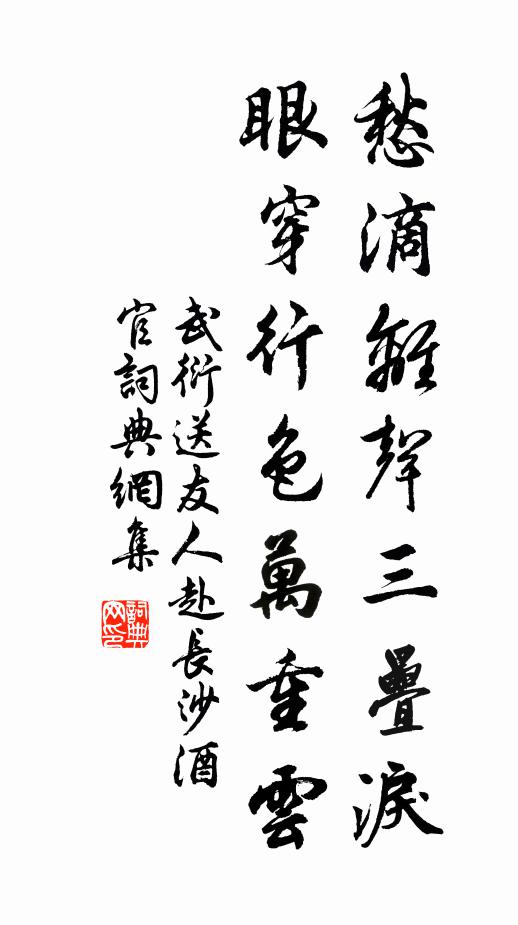 愁滴離聲三疊淚
眼穿行色萬重雲
武衍送友人赴長沙酒
官詞典網集
詞典
网印